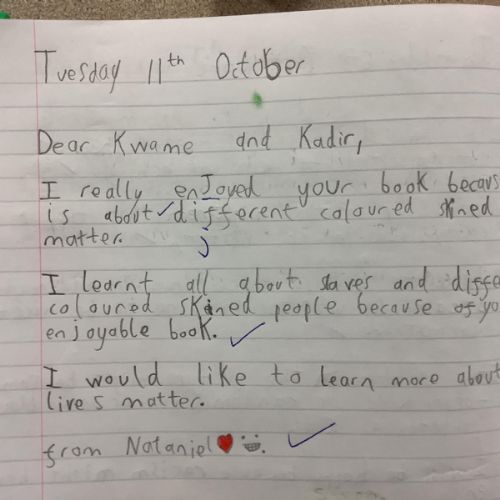 Tuesday 11th October
Dear Kwame and Kadir,
I really enJoyed your book becaus
is about different coloured skined
matter.
I learnt all about slaves and diffe
coloured skined people because of yo
enjoyable book.
I would like to learn more about
lives matter.
from Nataniel